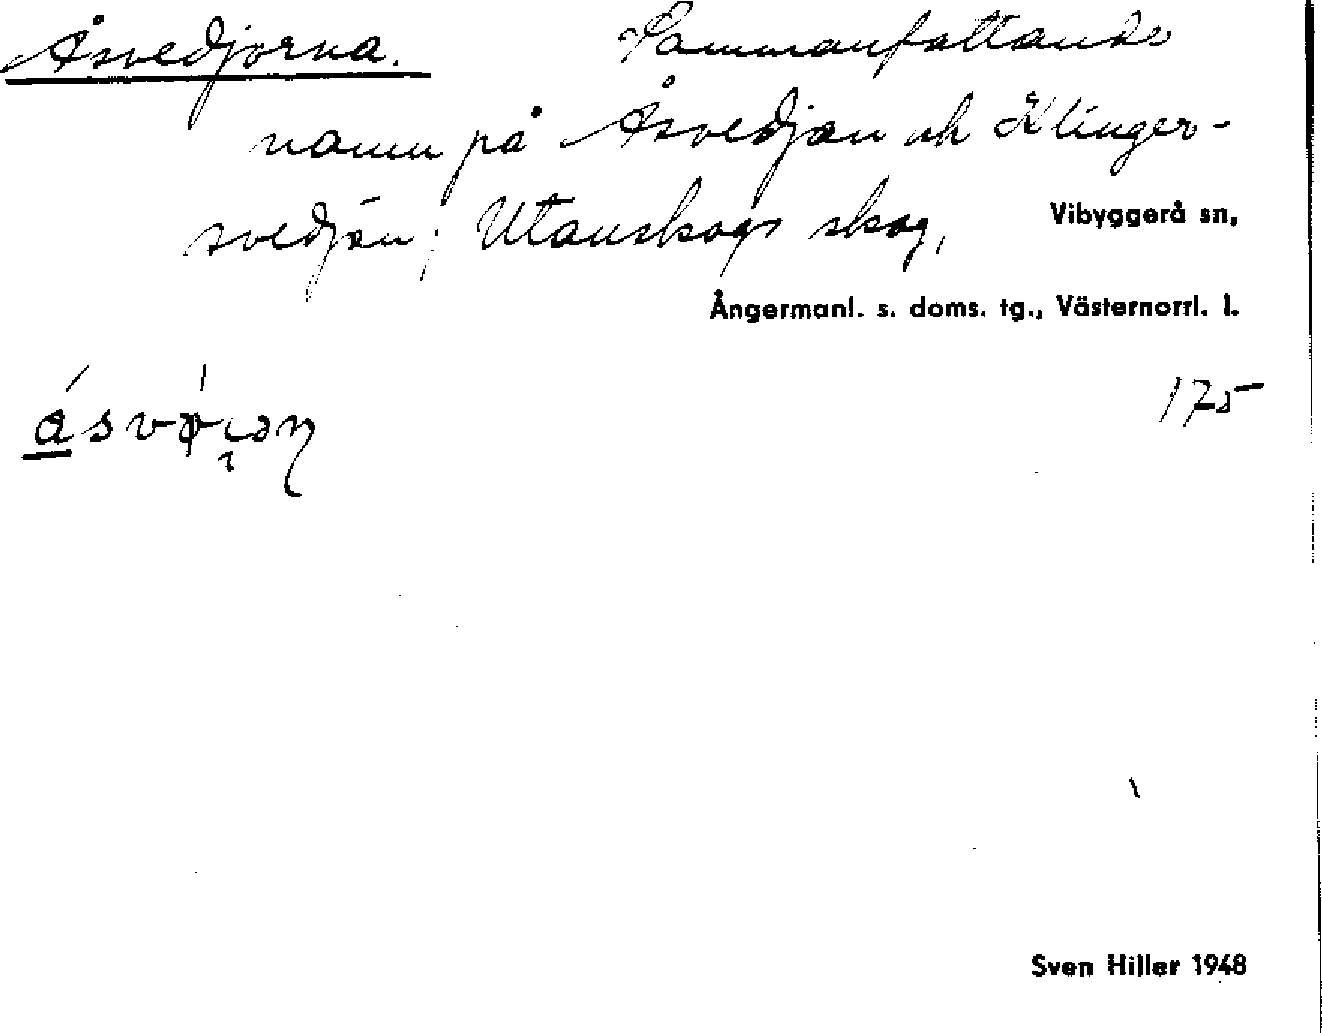 Åsvedjorna. Sammanfattande
namn på Åsvedjan och Klinger-
svedjan; Utanskogs skog, Vibyggerå sn,
Ångermanl. s. doms. tg., Västernorrl. l.
175
Sven Hiller 1948